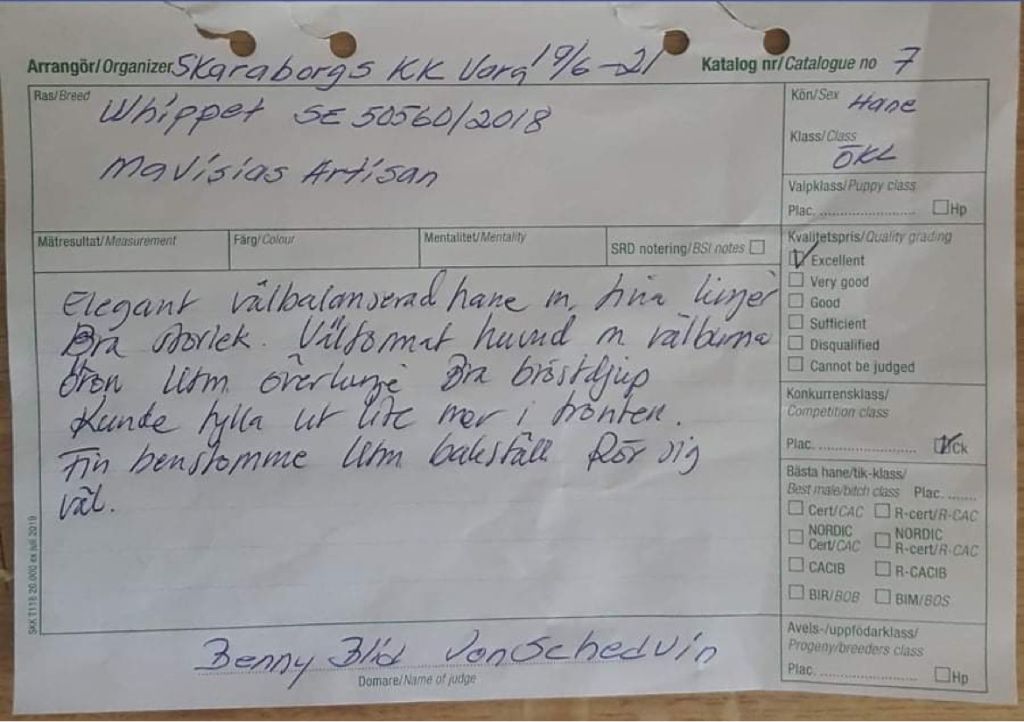 Arrangör/Organizer Skaraborgs KK Vara 19/6-21 Katalog nr/Catalogue no 7
Ras/Breed Whippet SE 50560/2018
Mavisias Artisan
Kön/Sex Hane
Klass/Class ÖKL
Valpklass/Puppy class
Plac. Hp
Mätresultat/Measurement Färg/Colour Mentalitet/Mentality SRD notering/BSI notes
Kvalitetspris/Quality grading
Excellent
Very good
Good
Sufficient
Disqualified
Cannot be judged
Elegant välbalanserad hane m, fina linjer
Bra storlek. Välformat huvud m välburna
öron Utm överlinje Bra bröstdjup
Kunde fylla ut lite mer i fronten.
Fin benstomme Utm bakställ Rör sig
väl.
Konkurrensklass/
Competition class
Plac. Ck
Bästa hane/tik-klass/
Best male/bitch class Plac.
Cert/CAC R-cert/R-CAC
NORDIC Cert/CAC NORDIC R-cert/R-CAC
CACIB R-CACIB
BIR/BOB BIM/BOS
Avels-/uppfödarklass/
Progeny/breeders class
Plac. Hp
SKK T118 20.000 ex juli 2019
Benny Blid VonSchedvin
Domare/Name of judge